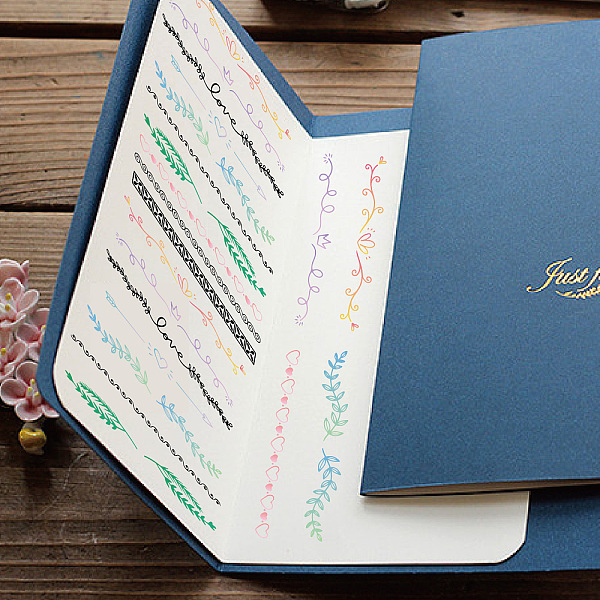 love
love
Just